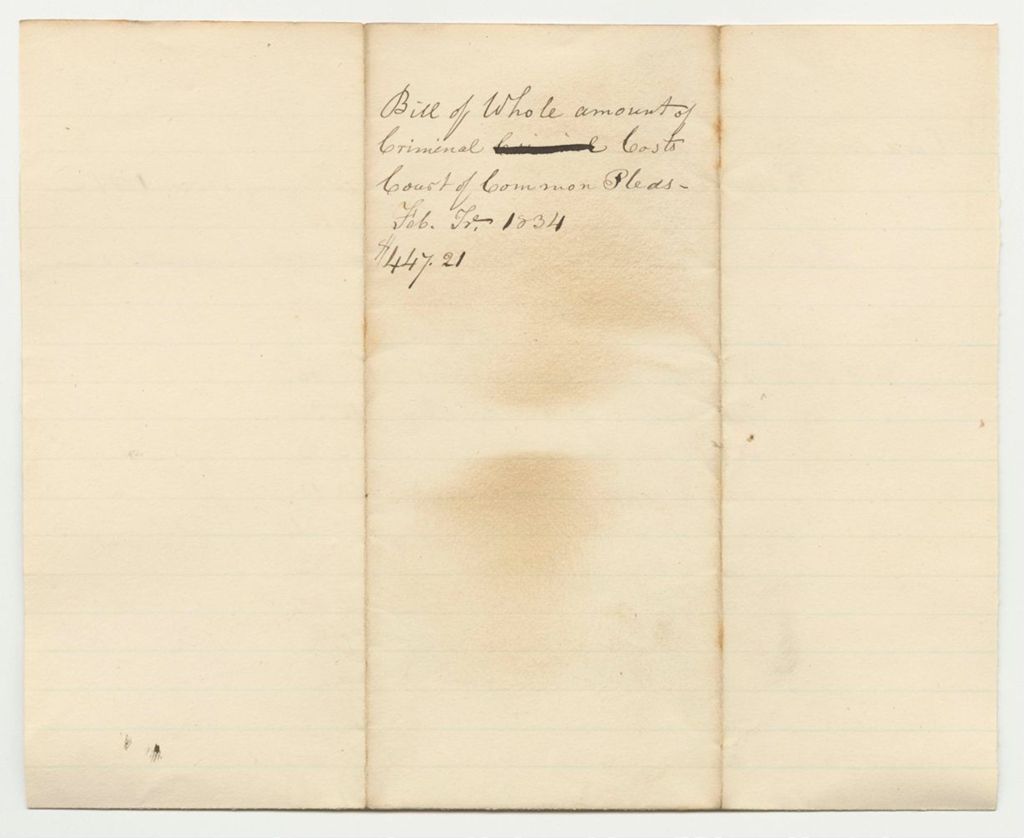 Bill of Whole amount of
Criminal Costs
Court of Common Pleas-
Feb. Tr. 1834
$447.21